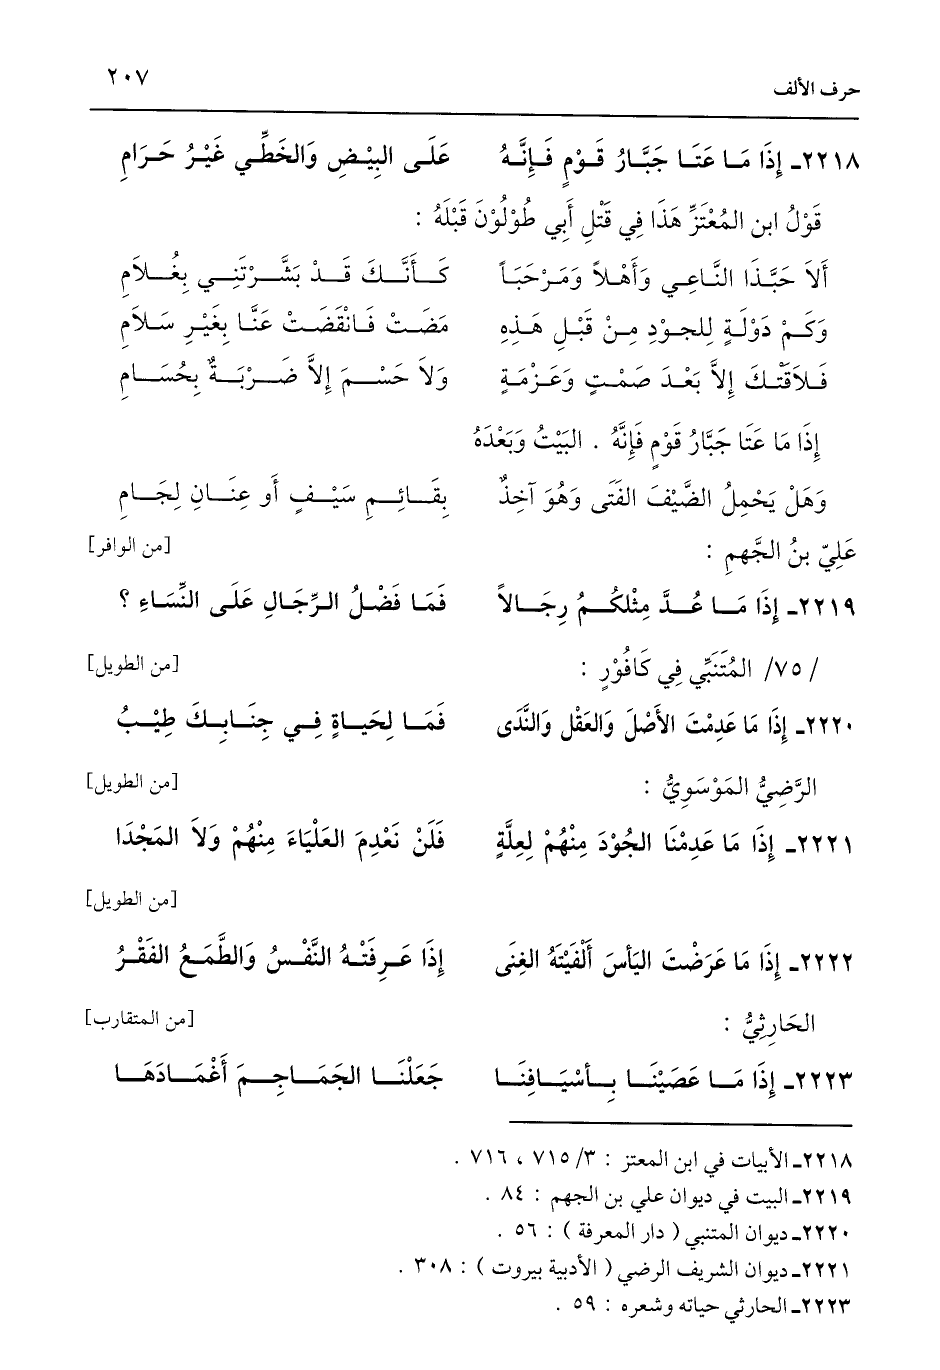 حرف الألف ٢٠٧
٢٢١٨ـ إِذَا مَا عَتَا جَبَّارُ قَوْمٍ فَإِنَّهُ عَلَى البِيْضِ وَالخَطِّي غَيْرُ حَرَامِ
قَوْلُ ابن المُعْتَزِّ هَذَا فِي قَتْلِ أَبِي طُوْلُوْنَ قَبْلَهُ :
أَلاَ حَبَّذَا النَّاعِي وَأَهْلاً وَمَرْحَبَاً كَأَنَّكَ قَدْ بَشَّرْتَنِي بِغُلاَمِ
وَكَمْ دَوْلَةٍ لِلجودِ مِنْ قَبْلِ هَذِهِ مَضَتْ فَانْقَضَتْ عَنَّا بِغَيْرِ سَلاَمِ
فَلاَقَتْكَ إِلاَّ بَعْدَ صَمْتٍ وَعَزْمَةٍ وَلاَ حَسْمَ إِلاَّ ضَرْبَةٌ بِحُسَامِ
إِذَا مَا عَتَا جَبَّارُ قَوْمٍ فَإِنَّهُ . البَيْتُ وَبَعْدَهُ
وَهَلْ يَحْمِلُ الضَّيْفَ الفَتَى وَهُوَ آخِذٌ بِقَائِمِ سَيْفٍ أَو عِنَانِ لِجَامِ
عَلِيّ بنُ الجَّهمِ : [من الوافر]
٢٢١٩ـ إِذَا مَا عُدَّ مِثْلكُمُ رِجَالاً فَمَا فَضْلُ الرِّجَالِ عَلَى النِّسَاءِ ؟
/ ٧٥/ المُتَنَبِّي فِي كَافُوْرٍ : [من الطويل]
٢٢٢٠ـ إِذَا مَا عَدِمْتَ الأَصْلَ وَالعَقْل وَالنَّدَى فَمَا لِحَيَاةٍ فِي جِنَابِكَ طِيْبُ
الرَّضِيُّ المَوْسَوِيُّ : [من الطويل]
٢٢٢١ـ إِذَا مَا عَدِمْنَا الجُوْدَ مِنْهُمْ لِعِلَّةٍ فَلَنْ نَعْدِمَ العَلْيَاءَ مِنْهُمْ وَلاَ المَجْدَا
[من الطويل]
٢٢٢٢ـ إِذَا مَا عَرَضْتَ اليَأسَ أَلْفَيْتَهُ الغِنَى إِذَا عَرِفَتْهُ النَّفْسُ وَالطَّمَعُ الفَقْرُ
الحَارِثِيُّ : [من المتقارب]
٢٢٢٣ـ إِذَا مَا عَصَيْنَا بِأَسْيَافِنَا جَعَلْنَا الجَمَاجِمَ أَغْمَادَهَا
٢٢١٨ـ الأبيات في ابن المعتز : ٣/ ٧١٥ ، ٧١٦ .
٢٢١٩ـ البيت في ديوان علي بن الجهم : ٨٤ .
٢٢٢٠ـ ديوان المتنبي ( دار المعرفة ) : ٥٦ .
٢٢٢١ـ ديوان الشريف الرضي ( الأدبية بيروت ) : ٣٠٨ .
٢٢٢٣ـ الحارثي حياته وشعره : ٥٩ .